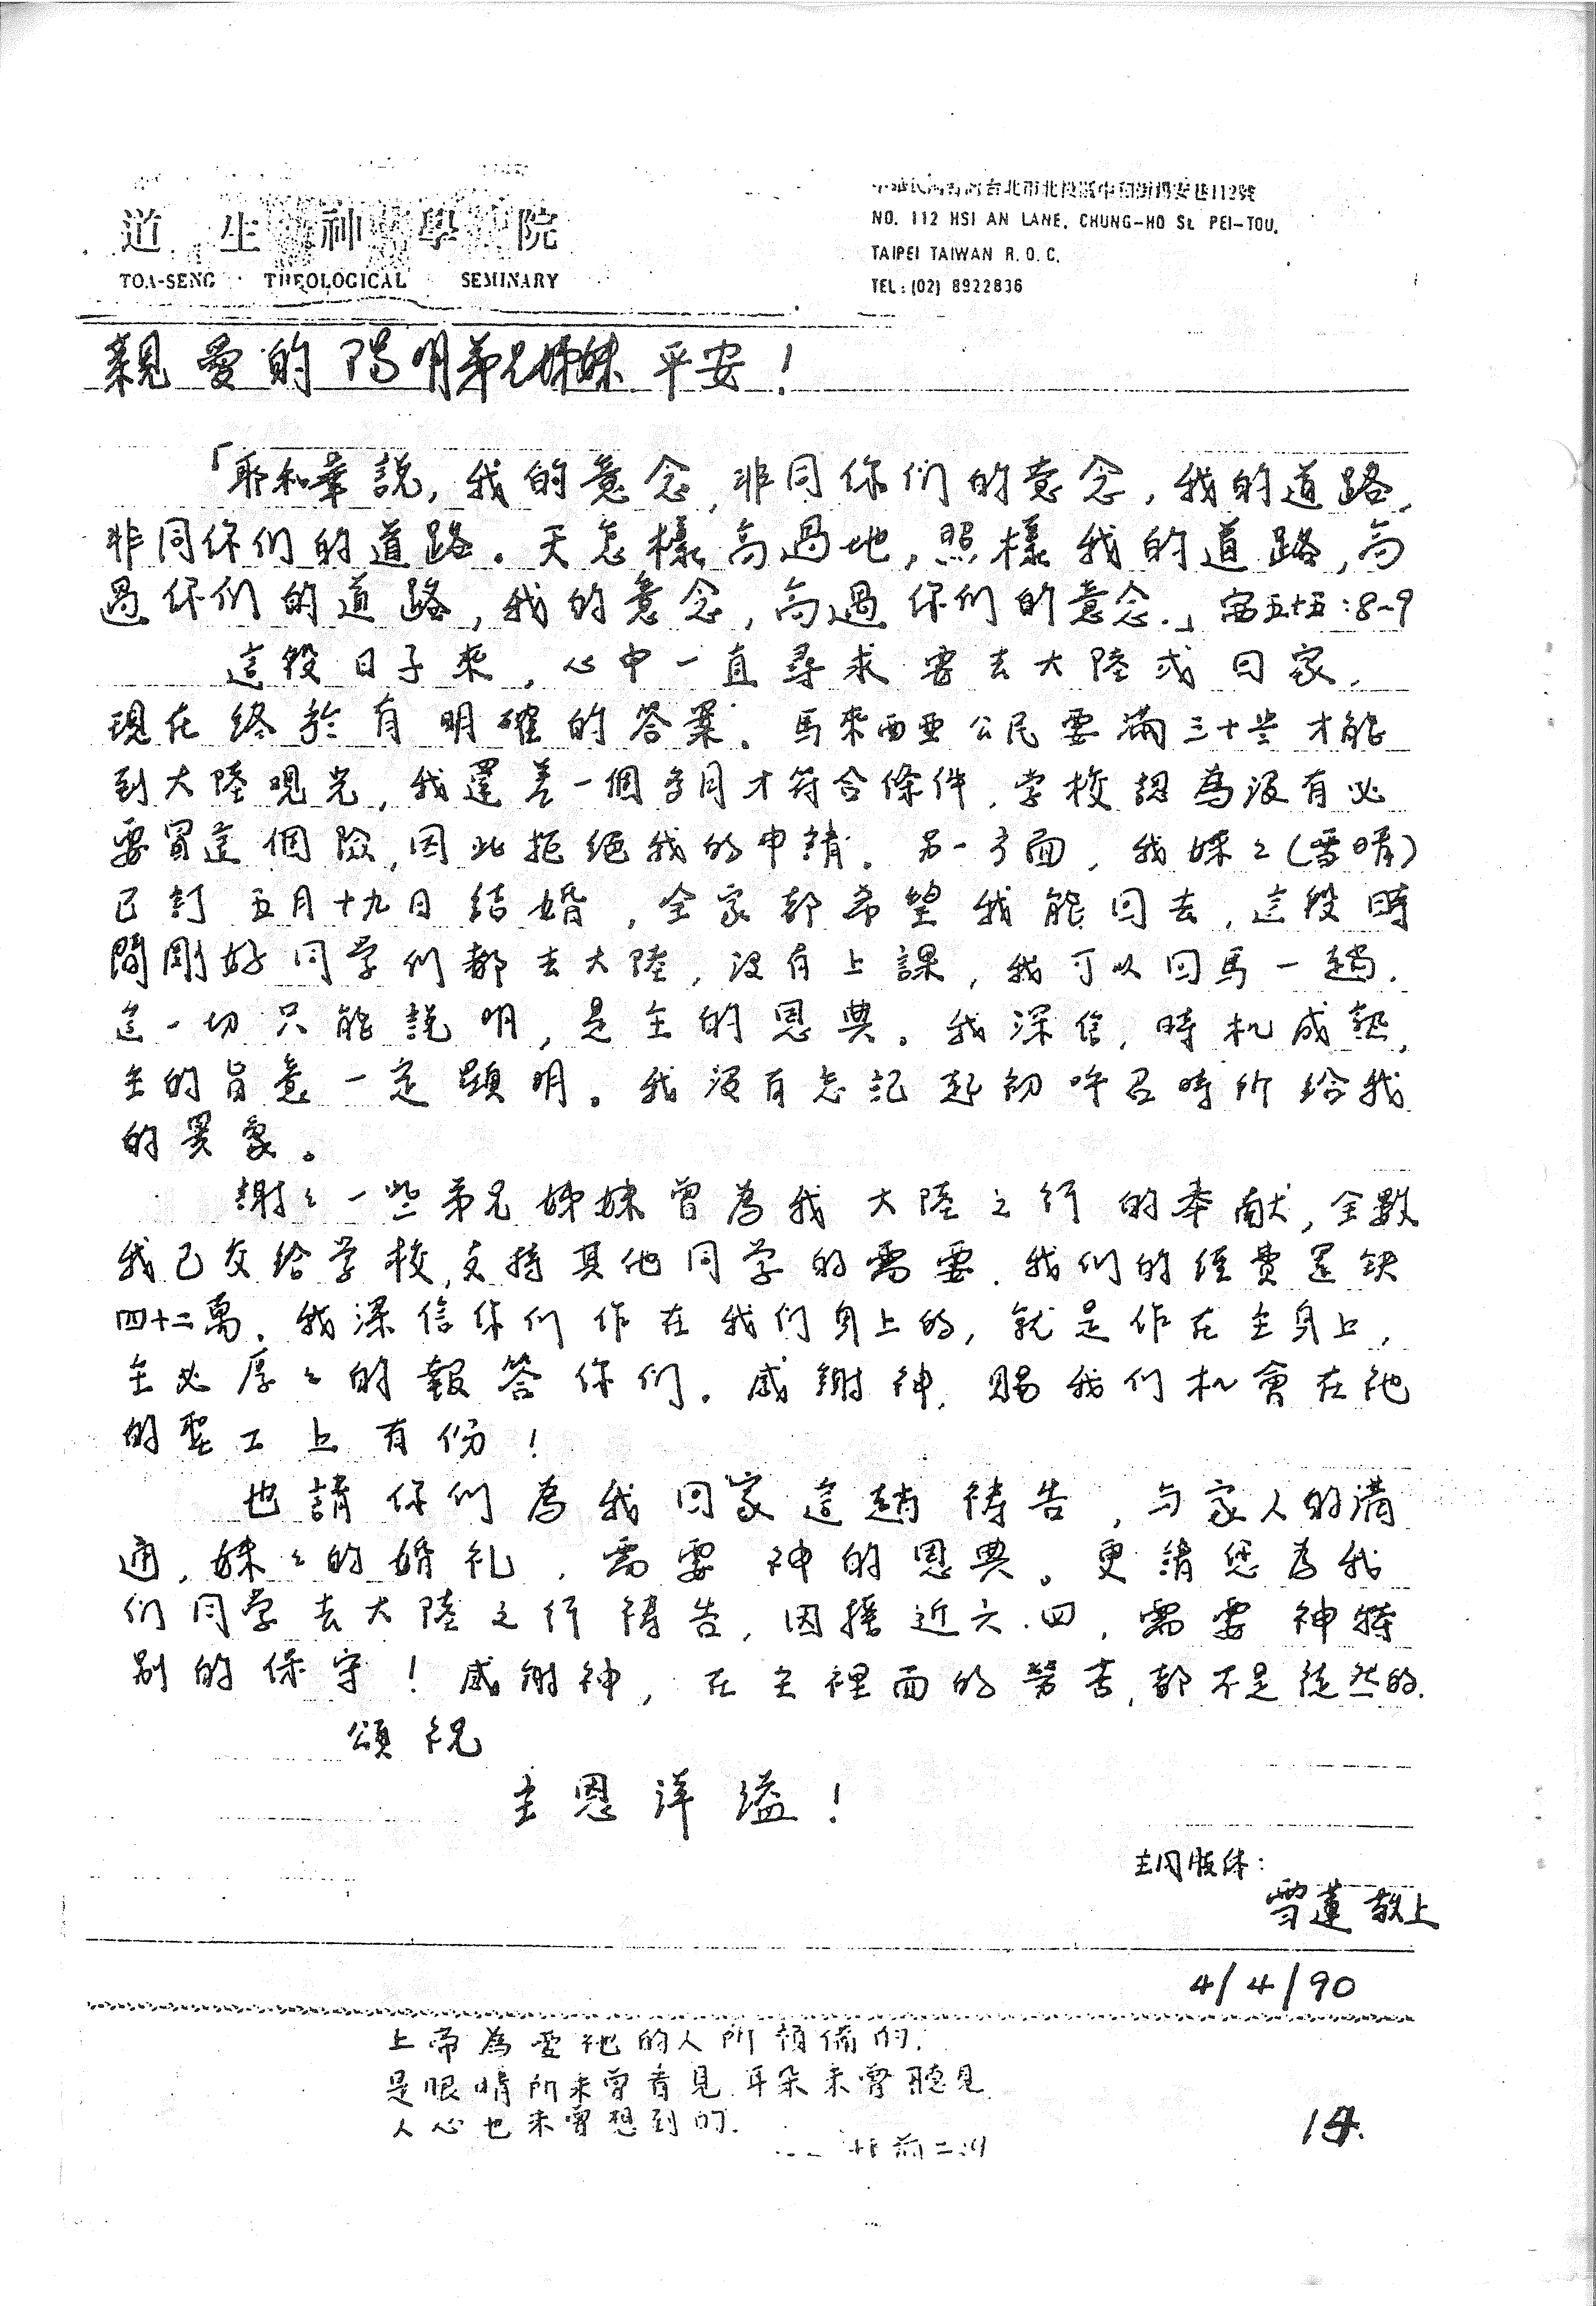 道生神學院
TOA-SENG THEOLOGICAL SEMINARY
台北市北投區中和街稀安巷112號
NO. 112 HSI AN LANE. CHUNG-HO St. PEI-TOU.
TAIPEI TAIWAN R.O.C.
TEL:(02) 8922836
親愛的陽明弟兄姊妹平安!
「耶和華說,我的意念,非同你们的意念,我的道路,
非同你们的道路。天怎樣高過地,照樣我的道路,高
過你们的道路,我的意念,高過你们的意念.」賽五十五:8-9
這段日子來,心中一直尋求要去大陸或回家,
現在終於有明確的答案。馬來西亜公民要滿三十岁才能
到大陸观光,我還差一個多月才符合條件,学校認為没有必
要冒這個險,因此拒絕我的申請。另一方面,我妹々(雪晴)
已訂五月十九日結婚,全家都希望我能回去,這段時
間剛好同学们都去大陸,没有上課,我可以回馬一趟.
這一切只能說明,是主的恩典。我深信,時机成熟,
主的旨意一定顕明。我没有忘記起初呼召時所給我
的異象。
謝々一些弟兄姊妹曾為我大陸之行的奉献,全數
我已交給学校,支持其他同学的需要.我们的經費還缺
四十二萬.我深信你们作在我们身上的,就是作在主身上,
主必厚々的報答你们。感謝神,賜我们机會在祂
的聖工上有份!
也請你们為我回家這趟祷告,与家人的溝
通,妹々的婚礼,需要神的恩典。更請您為我
们同学去大陸之行祷告,因接近六.四,需要神特
别的保守!感謝神,在主裡面的勞苦,都不是徒然的.
頌祝
主恩洋溢!
主内肢体:
雪蓮敬上
4/4/90
上帝為愛祂的人所預備的.
是眼睛所未曾看見耳朵未曾聽見
人心也未曾想到的.
林前二:9
14.